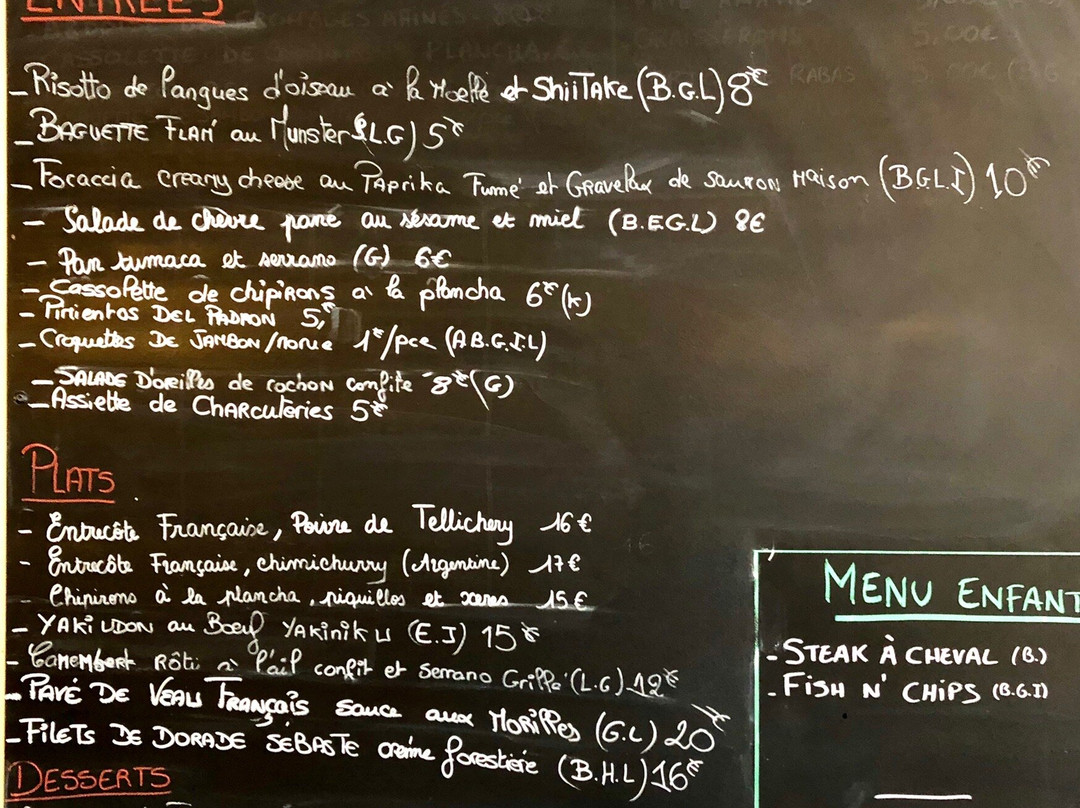 ENTRÉES
- Risotto de Langues d'oiseau à la Moelle et ShiiTAKE (B.G.L) 8€
- BAGUETTE FLAM' au Munster (L.G) 5€
- Focaccia creamy cheese au PAPRIKA Fumé et GRAVELAX de SAUMON Maison (BGL.I) 10€
- Salade de chèvre pané au sésame et miel (B.E.G.L) 8€
- Pan tumaca et serrano (G) 6€
- Cassolette de chipirons à la plancha 6€ (k)
- Pimientos DEL PADRON 5,€
- Croquettes DE JAMBON/morue 1€/pce (A.B.G.I.L)
- SALADE D'oreilles de cochon confite 8€ (G)
- Assiette de CHARcuteries 5€
PLATS
- Entrecôte Française, Poivre de Tellichery 16€
- Entrecôte Française, chimichurry (Argentine) 17€
- Chipirons à la plancha, piquillos et xeres 15€
- YAKI UDON au Boeuf YAKINIKU (E.J) 15€
- Camembert Rôti à l'ail confit et Serrano Grillé (L.G) 12€
- PAVÉ DE VEAU FRANÇAIS sauce aux MORilles (G.L) 20€
- FILETS DE DORADE SÉBASTE crème forestière (B.H.L) 16€
DESSERTS
MENU ENFANT
- STEAK À CHEVAL (B.)
- FISH N' CHIPS (B.G.I)